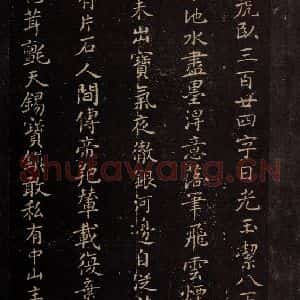 虎臥三百廿四字日光玉潔八
池水盡墨渾意活筆飛雲煙
未出寶氣夜徹銀河邊自從
片石人間傳帝羓輦載復棄
茸氈天錫寶刻敢私有中山
Shufawang.CN